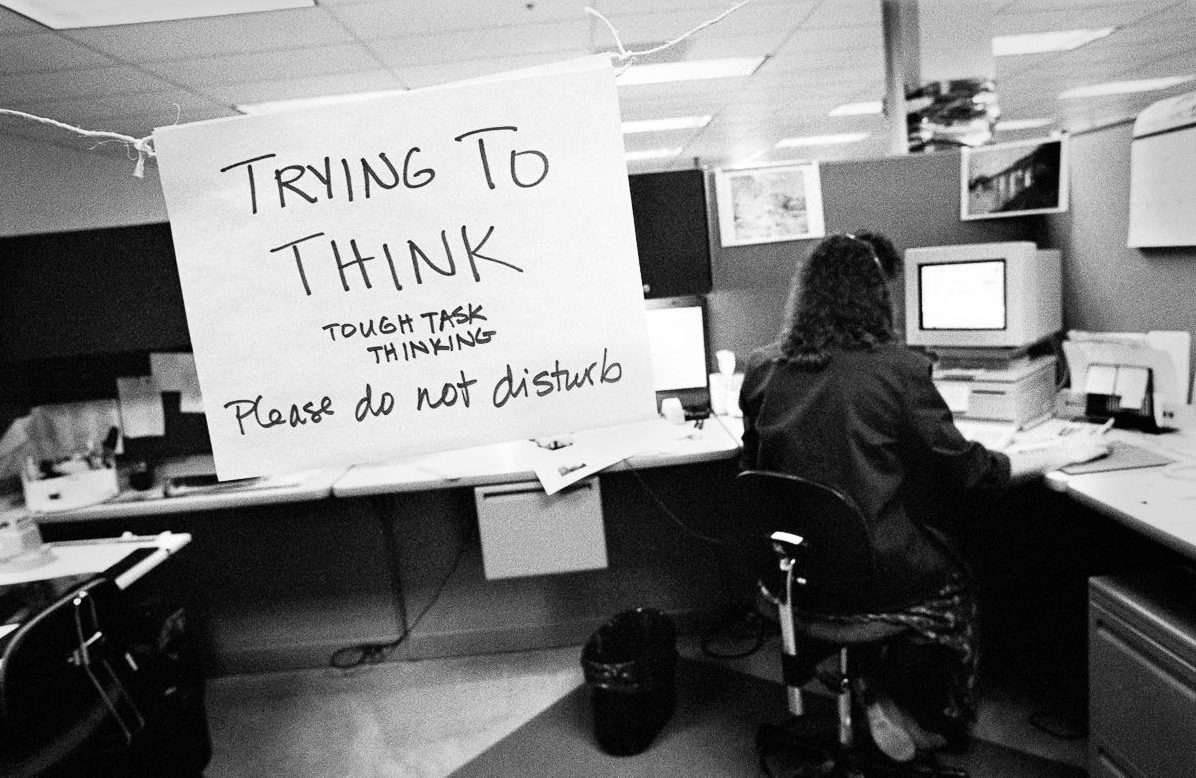 TRYING TO
THINK
TOUGH TASK
THINKING
Please do not disturb